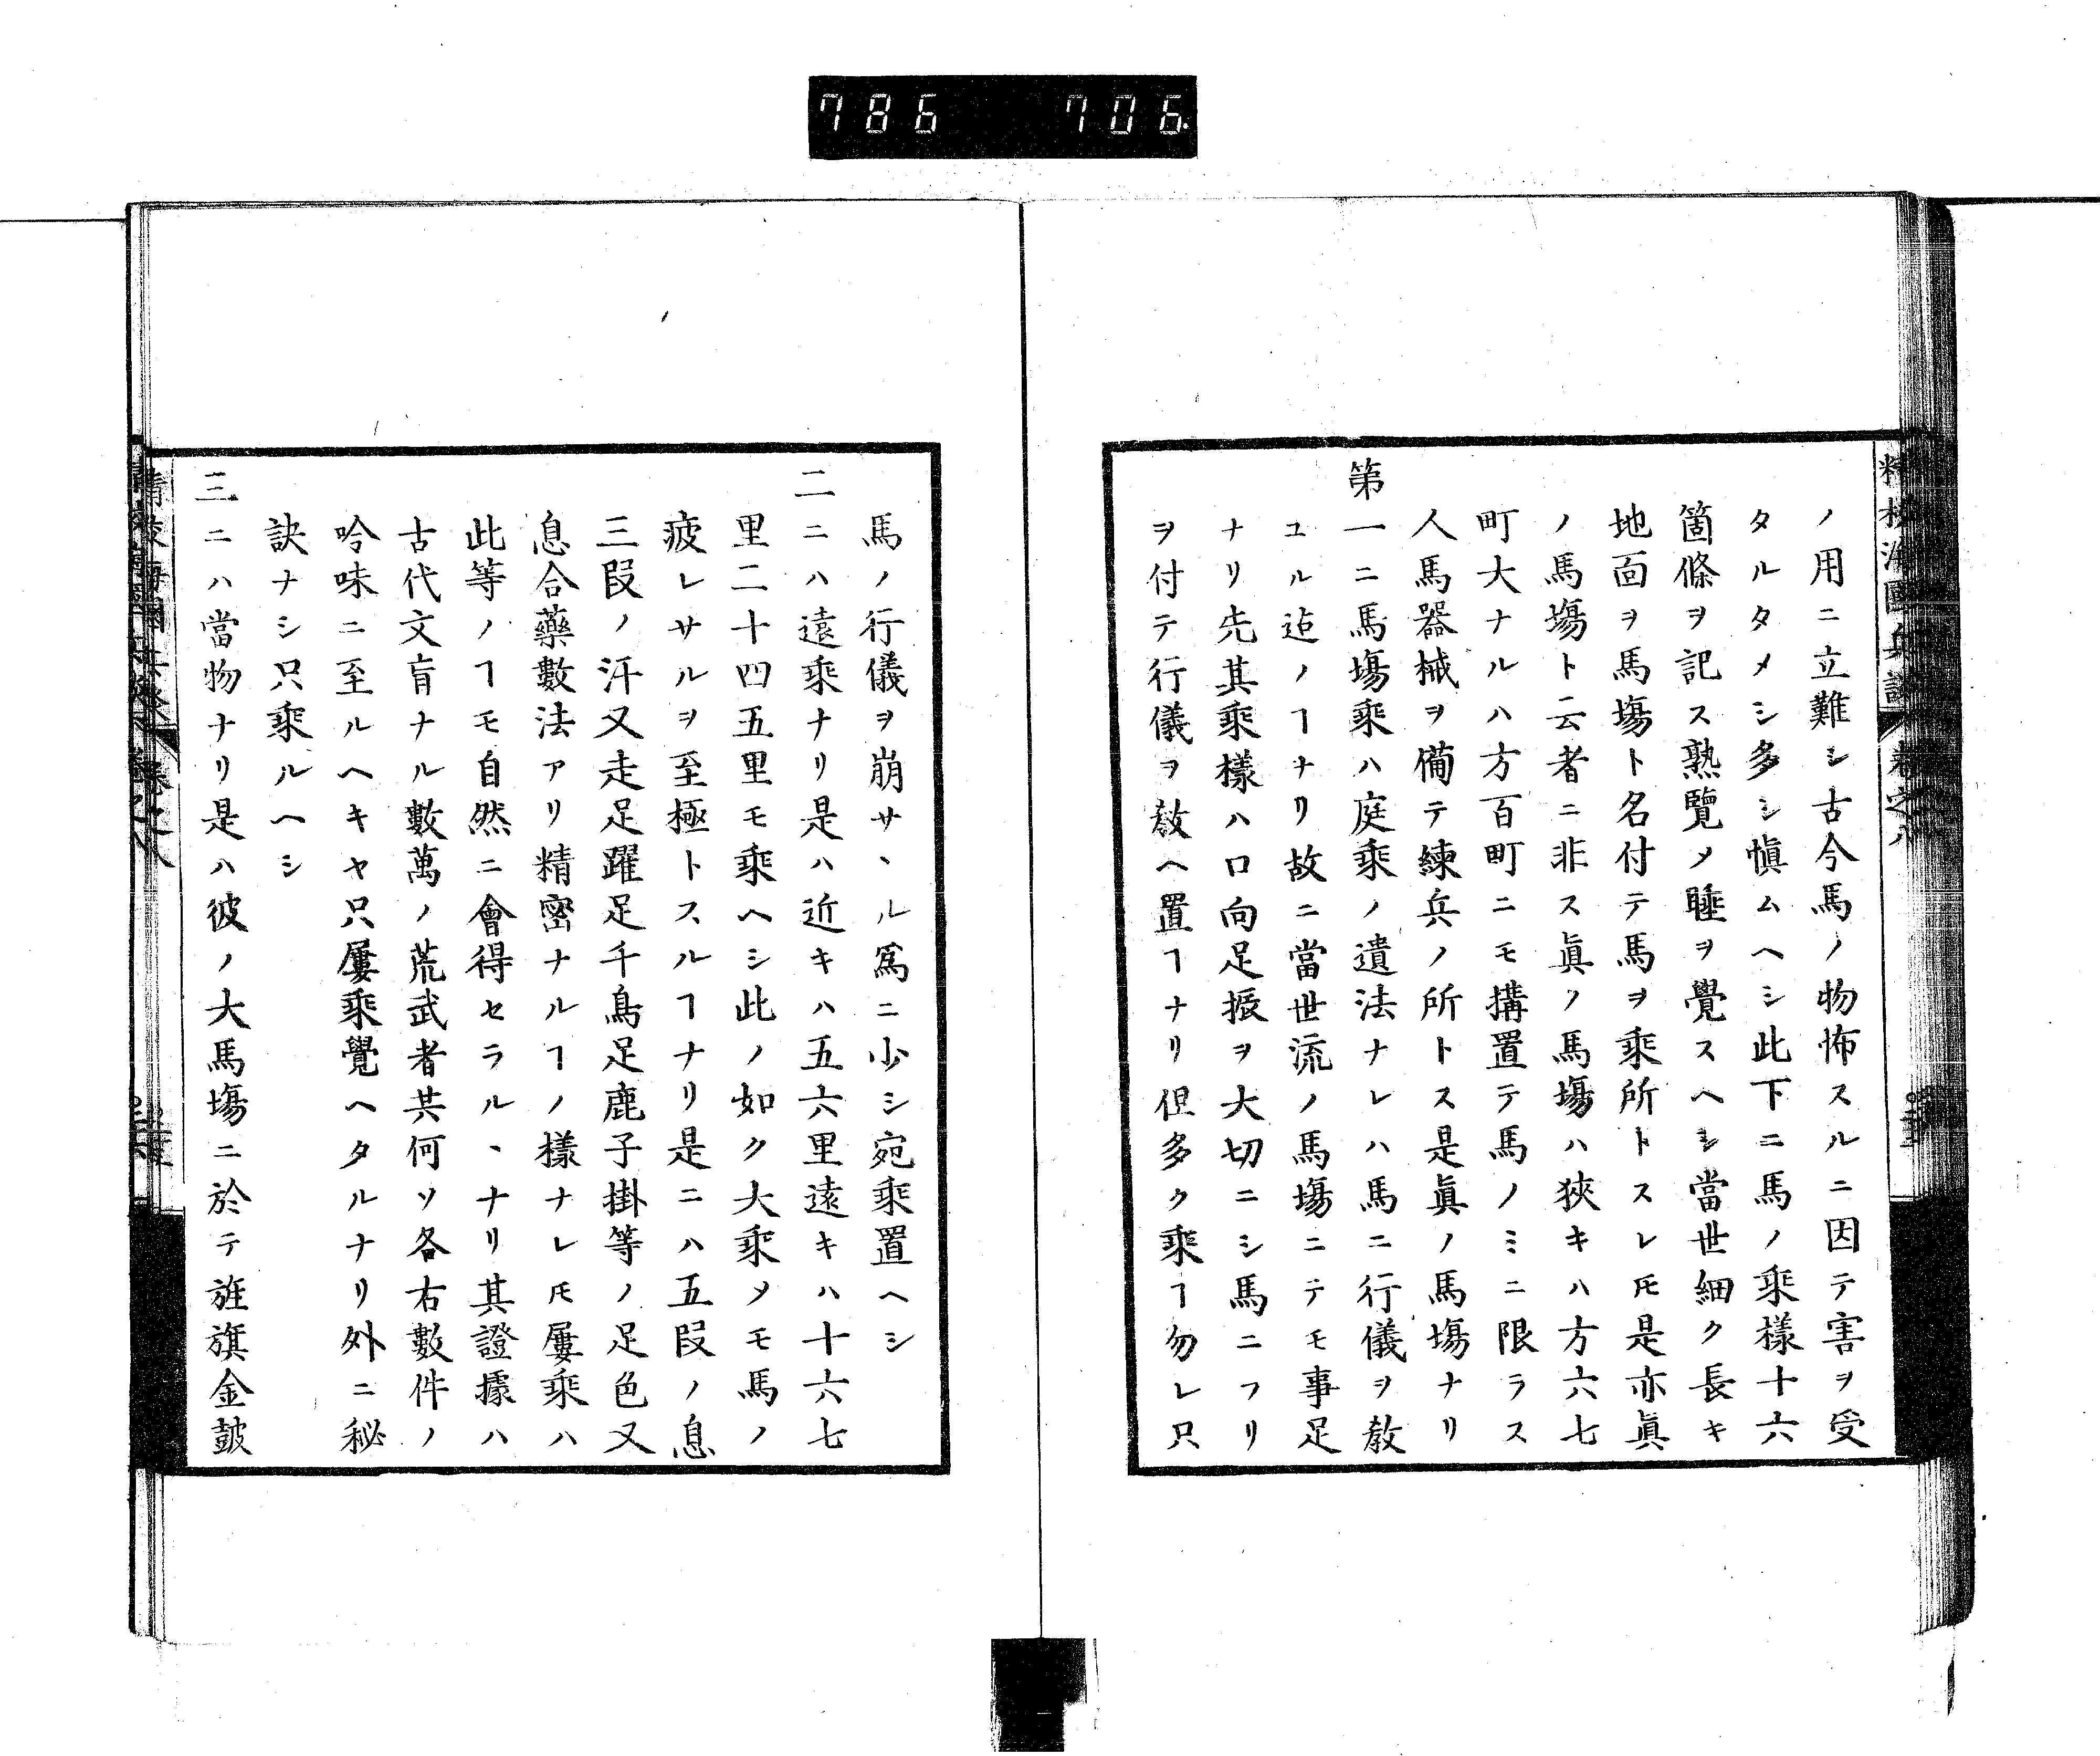 786 706
ノ用ニ立難シ古今馬ノ物怖スルニ因テ害ヲ受
タルタメシ多シ愼ムヘシ此下ニ馬ノ乘樣十六
箇條ヲ記ス熟覽メ睡ヲ覺スヘシ當世細ク長キ
地面ヲ馬塲ト名付テ馬ヲ乘所トスレ𪜈是亦眞
ノ馬塲ト云者ニ非ス眞ノ馬塲ハ狹キハ方六七
町大ナルハ方百町ニモ搆置テ馬ノミニ限ラス
人馬器械ヲ備テ練兵ノ所トス是眞ノ馬塲ナリ
第一ニ馬塲乘ハ庭乘ノ遺法ナレハ馬ニ行儀ヲ敎
ユル迠ノヿナリ故ニ當世流ノ馬塲ニテモ事足
ナリ先其乘樣ハ口向足振ヲ大切ニシ馬ニフリ
ヲ付テ行儀ヲ敎ヘ置ヿナリ但多ク乘ヿ勿レ只
馬ノ行儀ヲ崩サヽル爲ニ少シ宛乘置ヘシ
二ニハ遠乘ナリ是ハ近キハ五六里遠キハ十六七
里二十四五里モ乘ヘシ此ノ如ク大乘メモ馬ノ
疲レサルヲ至極トスルヿナリ是ニハ五叚ノ息
三叚ノ汗又走足躍足千鳥足鹿子掛等ノ足色又
息合藥數法アリ精密ナルヿノ樣ナレ𪜈屢乘ハ
此等ノヿモ自然ニ會得セラルヽナリ其證據ハ
古代文盲ナル數萬ノ荒武者共何ソ各右數件ノ
吟味ニ至ルヘキヤ只屢乘覺ヘタルナリ外ニ秘
訣ナシ只乘ルヘシ
三ニハ當物ナリ是ハ彼ノ大馬塲ニ於テ旌旗金鼓